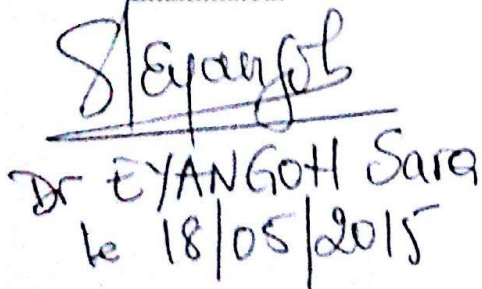 S/Eyangoh
Dr EYANGOH Sara
le 18/05/2015